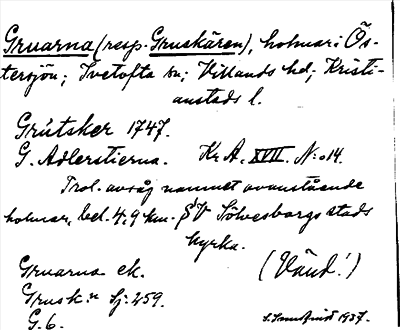 Gruarna (resp. Gruskären), holmar i Ös-
tersjön; Ivetofta sn; Villands hd; Kristi-
anstads l.
Grútsker 1747.
G. Adlerstierna. Kr A. XVII. N:o 14.
Trol. avsåg namnet ovanstående
holmar, bel. 4,9 km. SV Sölvesborgs stads
kyrka.
Gruarna ek. (Vänd!)
Grusk:n Sj: 259.
G. 6. 1937.